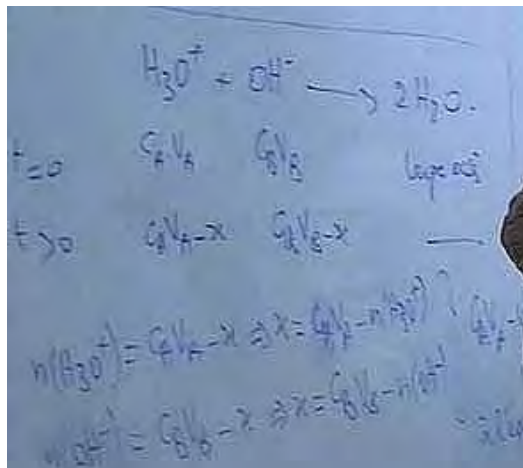 H₃O⁺ + OH⁻ → 2H₂O.
t=0 C_A V_A C_B V_B
t>0 C_A V_A - x C_B V_B - x —
n(H₃O⁺) = C_A V_A - x ⇒ x = C_A V_A - n(H₃O⁺)
n(OH⁻) = C_B V_B - x ⇒ x = C_B V_B - n(OH⁻)